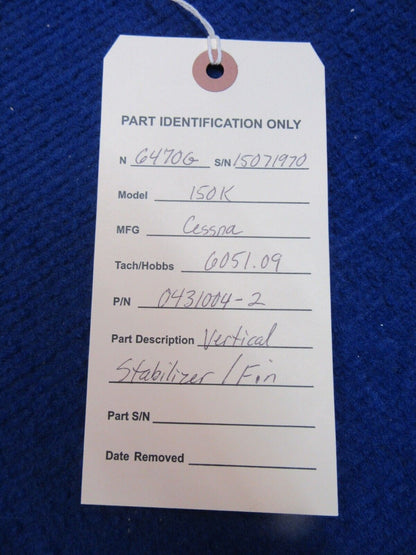 PART IDENTIFICATION ONLY
N 6470G S/N 15071970
Model 150K
MFG Cessna
Tach/Hobbs 6051.09
P/N 0431004-2
Part Description Vertical
Stabilizer / Fin
Part S/N
Date Removed